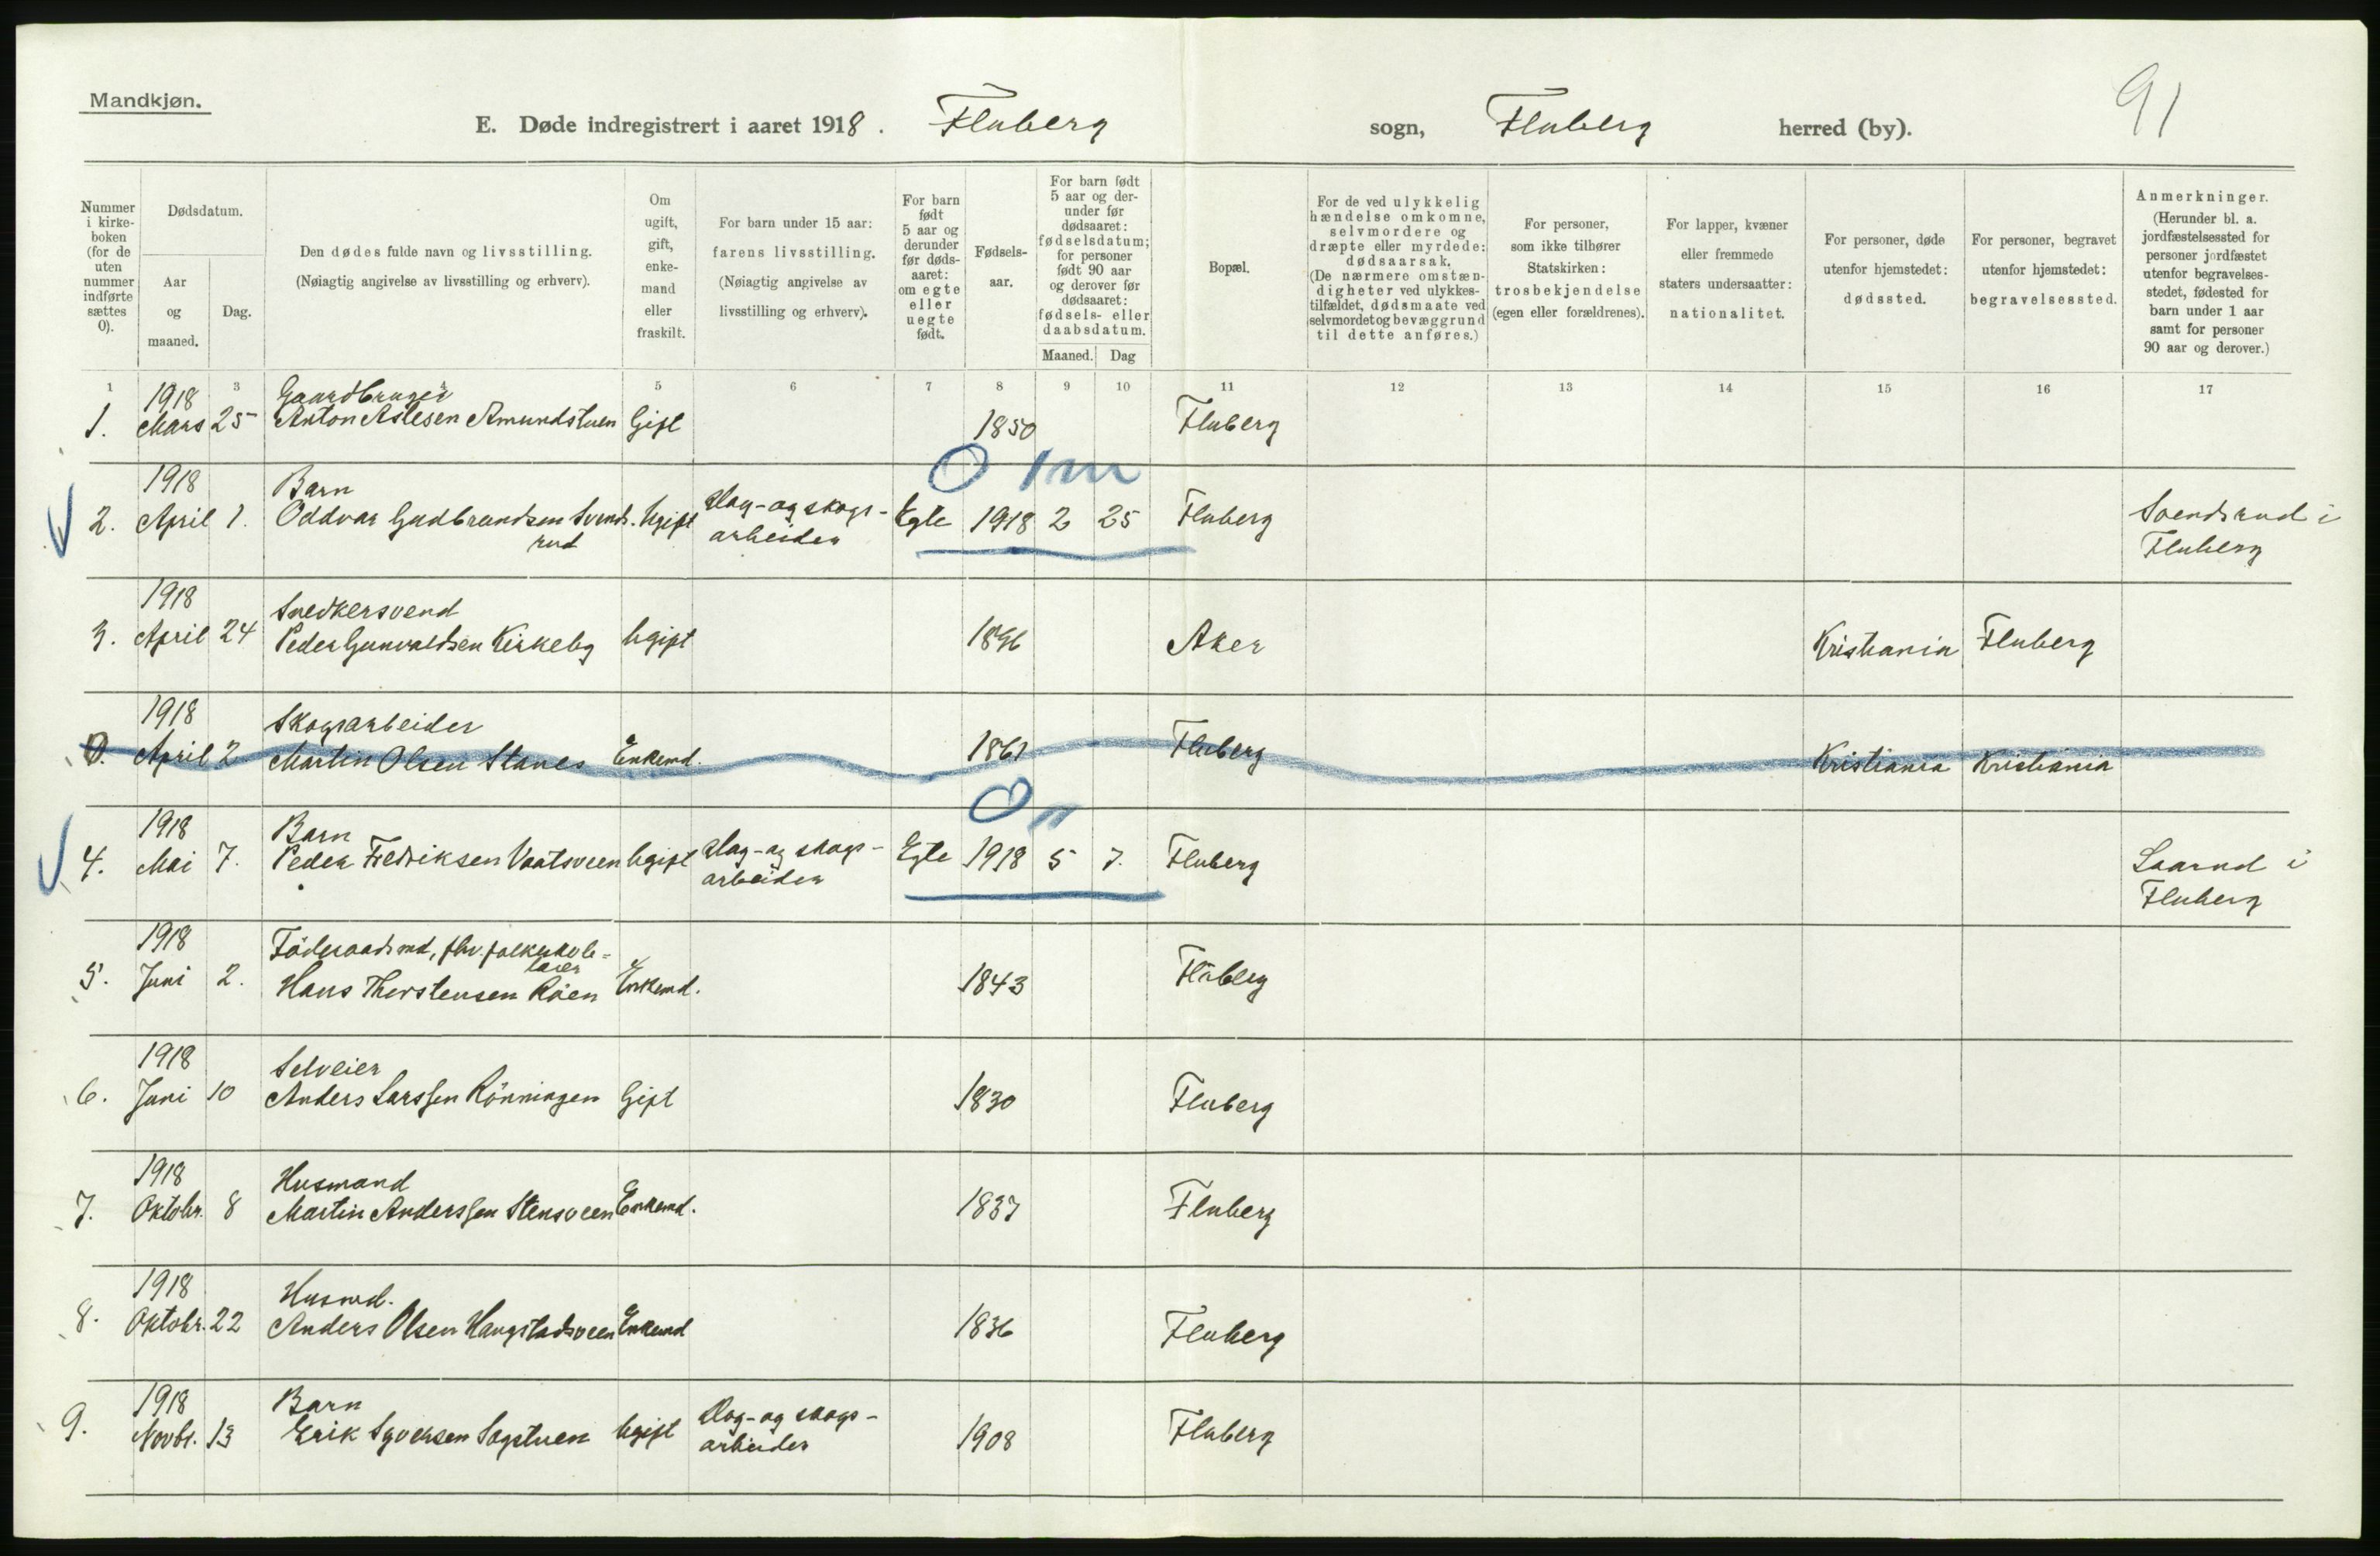 Mandkjøn.
91
E. Døde indregistrert i aaret 1918. Fluberg sogn, Fluberg herred (by).
Nummer i kirke-boken (for de uten nummer indførte sættes 0).
Dødsdatum.
Aar og maaned.
Dag.
Den dødes fulde navn og livsstilling.
(Nøiagtig angivelse av livsstilling og erhverv).
Om ugift, gift, enke-mand eller fraskilt.
For barn under 15 aar: farens livsstilling.
(Nøiagtig angivelse av livsstilling og erhverv).
For barn født 5 aar og derunder før døds-aaret: om egte eller uegte født.
Fødsels-aar.
For barn født 5 aar og der-under før dødsaaret: fødselsdatum; for personer født 90 aar og derover før dødsaaret: fødsels- eller daabsdatum.
Maaned. Dag
Bopæl.
For de ved ulykkelig hændelse omkomne, selvmordere og dræpte eller myrdede: dødsaarsak. (De nærmere omstæn-digheter ved ulykkes-tilfældet, dødsmaate ved selvmordet og bevæggrund til dette anføres.)
For personer, som ikke tilhører Statskirken: trosbekjendelse (egen eller forældrenes).
For lapper, kvæner eller fremmede staters undersaatter: nationalitet.
For personer, døde utenfor hjemstedet: dødssted.
For personer, begravet utenfor hjemstedet: begravelsessted.
Anmerkninger.
(Herunder bl. a. jordfæstelsessted for personer jordfæstet utenfor begravelses-stedet, fødested for barn under 1 aar samt for personer 90 aar og derover.)
1 3 4 5 6 7 8 9 10 11 12 13 14 15 16 17
1918 Gaardbruger
1. Mars 25 Anton Aslesen Amundstuen Gift 1850 Fluberg
0 1m
1918 Barn Dag- og skogs-
2. April 1. Oddvar Gudbrandsen Svends- Ugift arbeider Egte 1918 2 25 Fluberg Svendsrud i
rud Fluberg
1918 Snedkersvend
3. April 24 Peder Gunvaldsen Kirkeby Ugift 1896 Aker Kristiania Fluberg
1918 Skogsarbeider
0. April 2 Martin Olsen Stanes Enkemd. 1861 Fluberg Kristiania Kristiania
0
1918 Barn Dag- og skogs-
4. Mai 7. Peder Fredriksen Vaatsveen Ugift arbeider Egte 1918 5 7. Fluberg i
Fluberg
1918 Föderaadsmd, fhv. folkeskole-
lærer
5. Juni 2. Hans Thorstensen Röen Enkemd. 1843 Fluberg
1918 Selveier
6. Juni 10 Anders Larssen Rönningen Gift 1830 Fluberg
1918 Husmand
7. Oktobr. 8 Martin Anderssen Stensveen Enkemd. 1837 Fluberg
1918 Husmd.
8. Oktobr. 22 Anders Olsen Haugstadsveen Enkemd 1836 Fluberg
1918 Barn Dag- og skogs-
9. Novbr. 13 Erik Syversen Sagstuen Ugift arbeider 1908 Fluberg